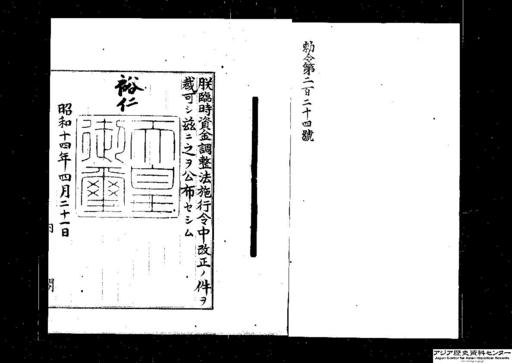 勅令第二百二十四號
朕臨時資金調整法施行令中改正ノ件ヲ
裁可シ茲ニ之ヲ公布セシム
裕仁
天皇
御璽
昭和十四年四月二十一日
内閣
アジア歴史資料センター
Japan Center for Asian Historical Records